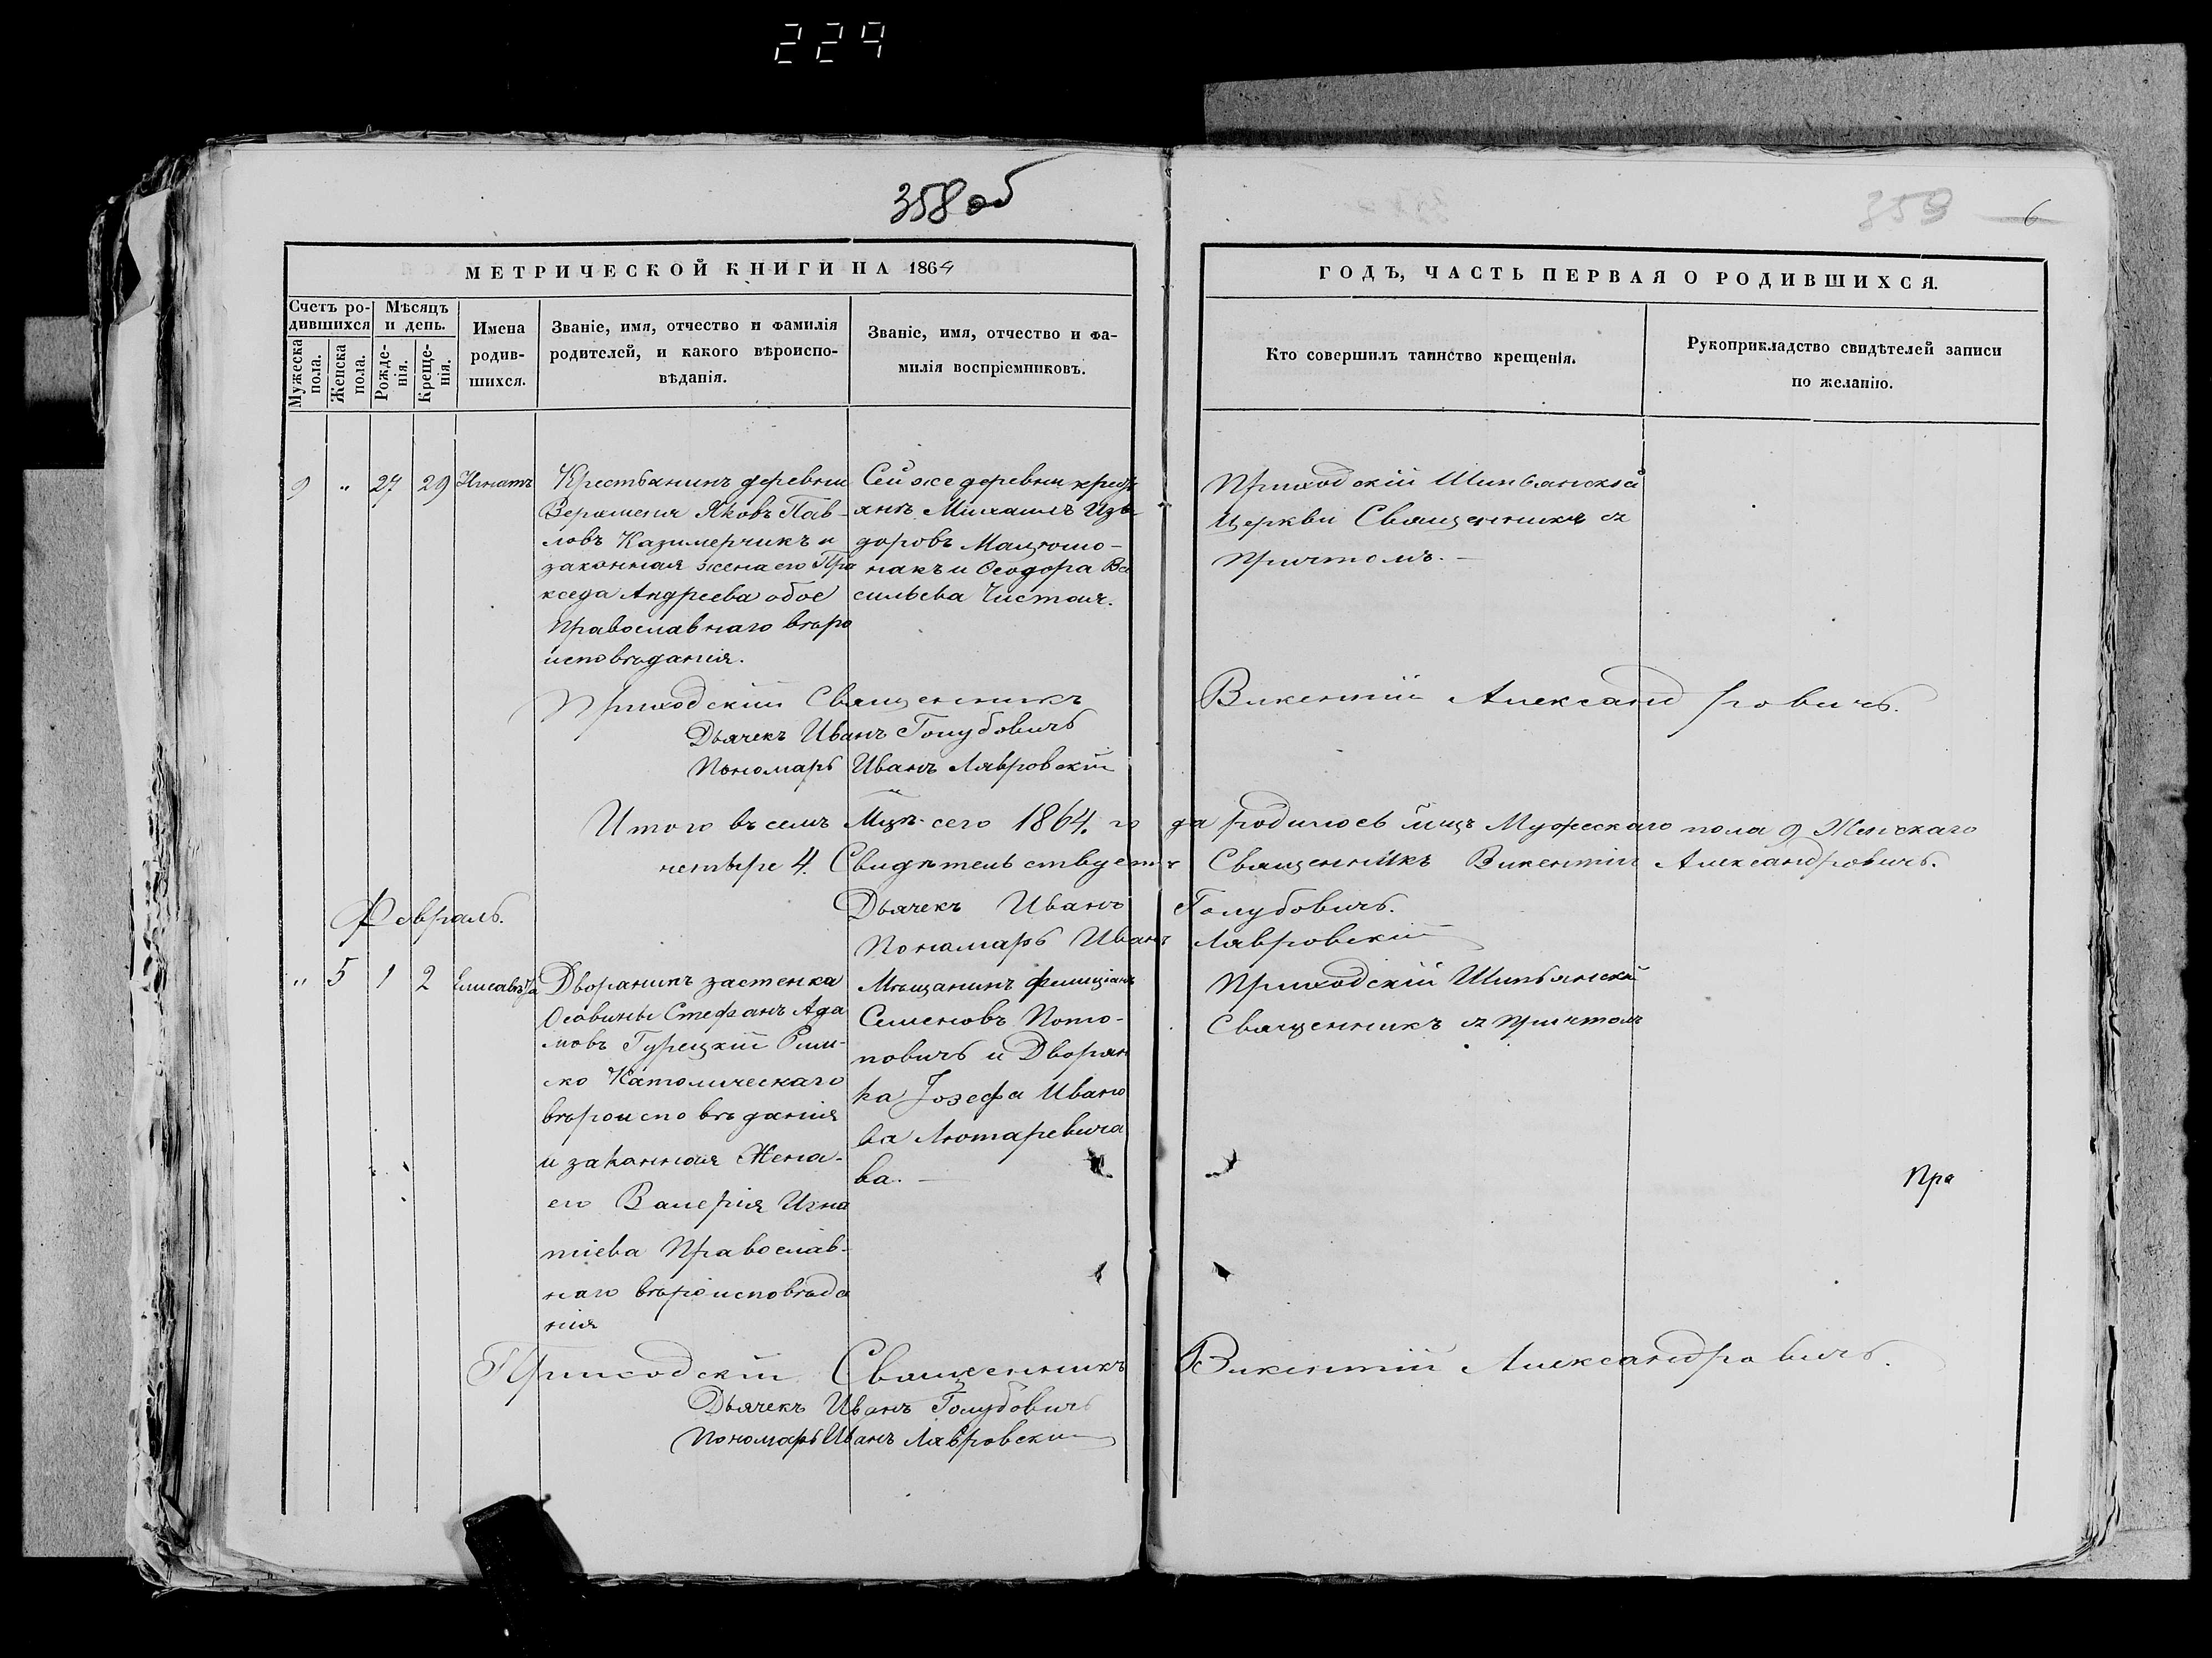 229
358 об
359
6
МЕТРИЧЕСКОЙ КНИГИ НА 1864
ГОДЪ, ЧАСТЬ ПЕРВАЯ О РОДИВШИХСЯ.
Счетъ ро-
дившихся
Мужеска
пола.
Женска
пола.
Мѣсяцъ
и день.
Рожде-
нія.
Креще-
нія.
Имена
родив-
шихся.
Званіе, имя, отчество и фамилія
родителей, и какого вѣроиспо-
вѣданія.
Званіе, имя, отчество и фа-
милія воспріемниковъ.
Кто совершилъ таинство крещенія.
Рукоприкладство свидѣтелей записи
по желанію.
9 " 27 29 Игнатъ
Крестьянинъ деревни
Яковъ Пав-
ловъ Казимерчикъ и
законная жена его Пра
кседа Андреева обое
Православнаго вѣро
исповѣданія.
Сей же деревни крест
янъ Михаилъ Изи
доровъ
накъ и Ѳеодора Ва
сильева Чистая.
Приходскій Шипянской
Церкви Священникъ съ
Причтомъ.
Приходскій Священникъ Викентій Александровичъ.
Дьячекъ Иванъ Голубовичъ
Пономарь Иванъ Лавровскій
Итого въ семъ Мцѣ сего 1864. года родилось Мужескаго пола 9 Женскаго
четыре 4. Свидѣтельствуетъ Священникъ Викентій Александровичъ.
Дьячекъ Иванъ Голубовичъ.
Пономарь Иванъ Лавровскій
Февраль.
" 5 1 2 Елисавѣта
Дворянинъ застенка
Осовины Стефанъ Ада
мовъ Турецкій Рим-
ско Католическаго
вѣроисповѣданія
и законная Жена-
его Валерія Игна
тіева Православ-
наго вѣроисповѣда
нія
Мѣщанинъ Фелиціанъ
Семеновъ Пото-
повичъ и Дворян
ка Іозефа Ивано
ва Лютаревича
ва.
Приходскій Шипьянскій
Священникъ съ причтомъ
Пра
Приходскій Священникъ Викентій Александровичъ.
Дьячекъ Иванъ Голубовичъ
Пономарь Иванъ Лавровскій